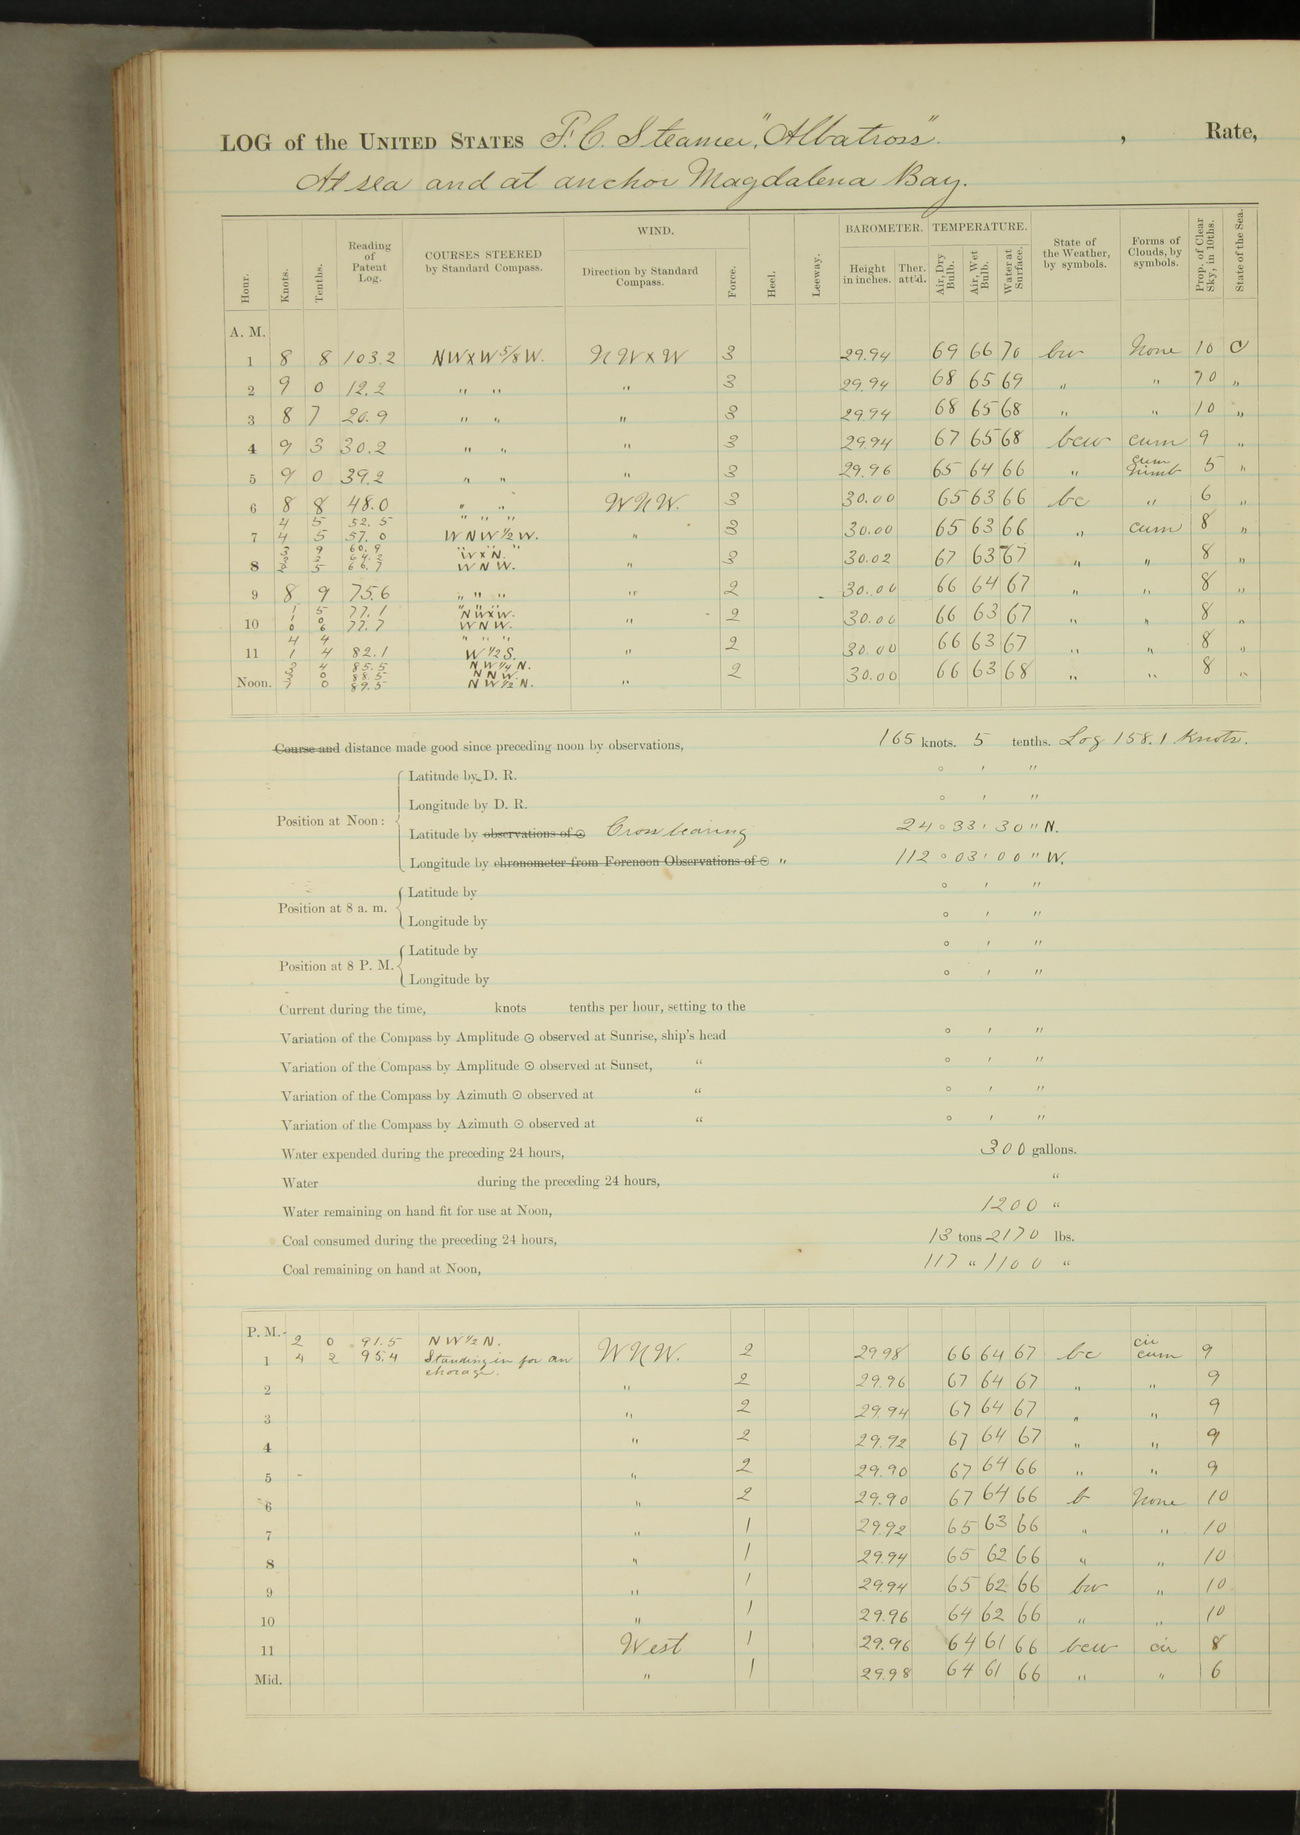 LOG of the UNITED STATES F. C. Steamer, "Albatross". , Rate,
At sea and at anchor Magdalena Bay.
Hour. Knots. Tenths. Reading of Patent Log. COURSES STEERED by Standard Compass. WIND. Direction by Standard Compass. Force. Heel. Leeway. BAROMETER. Height in inches. Ther. att'd. TEMPERATURE. Air, Dry Bulb. Air, Wet Bulb. Water at Surface. State of the Weather, by symbols. Forms of Clouds, by symbols. Prop. of Clear Sky, in 10ths. State of the Sea.
A. M.
1 8 8 103.2 NWxW 5/8 W. NWxW 3 29.94 69 66 70 bw None 10 C
2 9 0 12.2 " " " 3 29.94 68 65 69 " " 10 "
3 8 7 20.9 " " " 3 29.94 68 65 68 " " 10 "
4 9 3 30.2 " " " 3 29.94 67 65 68 bcw cum 9 "
5 9 0 39.2 " " " 3 29.96 65 64 66 " cum nimb 5 "
6 8 8 48.0 " " WNW. 3 30.00 65 63 66 bc " 6 "
4 5 52.5 " " "
7 4 5 57.0 WNW 1/2 W. " 3 30.00 65 63 66 " cum 8 "
3 9 60.9 " W x N. "
64.2
8 2 5 66.7 WNW. " 3 30.02 67 63 67 " " 8 "
9 8 9 75.6 " " " " 2 30.00 66 64 67 " " 8 "
1 5 77.1 " NWxW.
10 0 6 77.7 WNW. " 2 30.00 66 63 67 " " 8 "
4 4 " " "
11 1 4 82.1 W 1/2 S. " 2 30.00 66 63 67 " " 8 "
3 4 85.5 NW 1/4 N.
3 0 88.5 NNW.
Noon. 0 89.5 NW 1/2 N. " 2 30.00 66 63 68 " " 8 "
Course and distance made good since preceding noon by observations, 165 knots. 5 tenths. Log 158.1 Knots.
Latitude by D. R. ° ' "
Longitude by D. R. ° ' "
Position at Noon:
Latitude by observations of ☉ Cross bearing 24 ° 33 ' 30 " N.
Longitude by chronometer from Forenoon Observations of ☉ " 112 ° 03 ' 00 " W.
Latitude by ° ' "
Position at 8 a. m.
Longitude by ° ' "
Latitude by ° ' "
Position at 8 P. M.
Longitude by ° ' "
Current during the time, knots tenths per hour, setting to the
Variation of the Compass by Amplitude ☉ observed at Sunrise, ship's head ° ' "
Variation of the Compass by Amplitude ☉ observed at Sunset, " ° ' "
Variation of the Compass by Azimuth ☉ observed at " ° ' "
Variation of the Compass by Azimuth ☉ observed at " ° ' "
Water expended during the preceding 24 hours, 300 gallons.
Water during the preceding 24 hours, "
Water remaining on hand fit for use at Noon, 1200 "
Coal consumed during the preceding 24 hours, 13 tons 2170 lbs.
Coal remaining on hand at Noon, 117 " 1100 "
P. M.
2 0 91.5 NW 1/2 N.
1 4 2 95.4 Standing in for an WNW. 2 29.98 66 64 67 bc cir cum 9
chorage.
2 " 2 29.96 67 64 67 " " 9
3 " 2 29.94 67 64 67 " " 9
4 " 2 29.92 67 64 67 " " 9
5 " 2 29.90 67 64 66 " " 9
6 " 2 29.90 67 64 66 b None 10
7 " 1 29.92 65 63 66 " " 10
8 " 1 29.94 65 62 66 " " 10
9 " 1 29.94 65 62 66 bw " 10
10 " 1 29.96 64 62 66 " " 10
11 West 1 29.96 64 61 66 bcw cir 8
Mid. " 1 29.98 64 61 66 " " 6